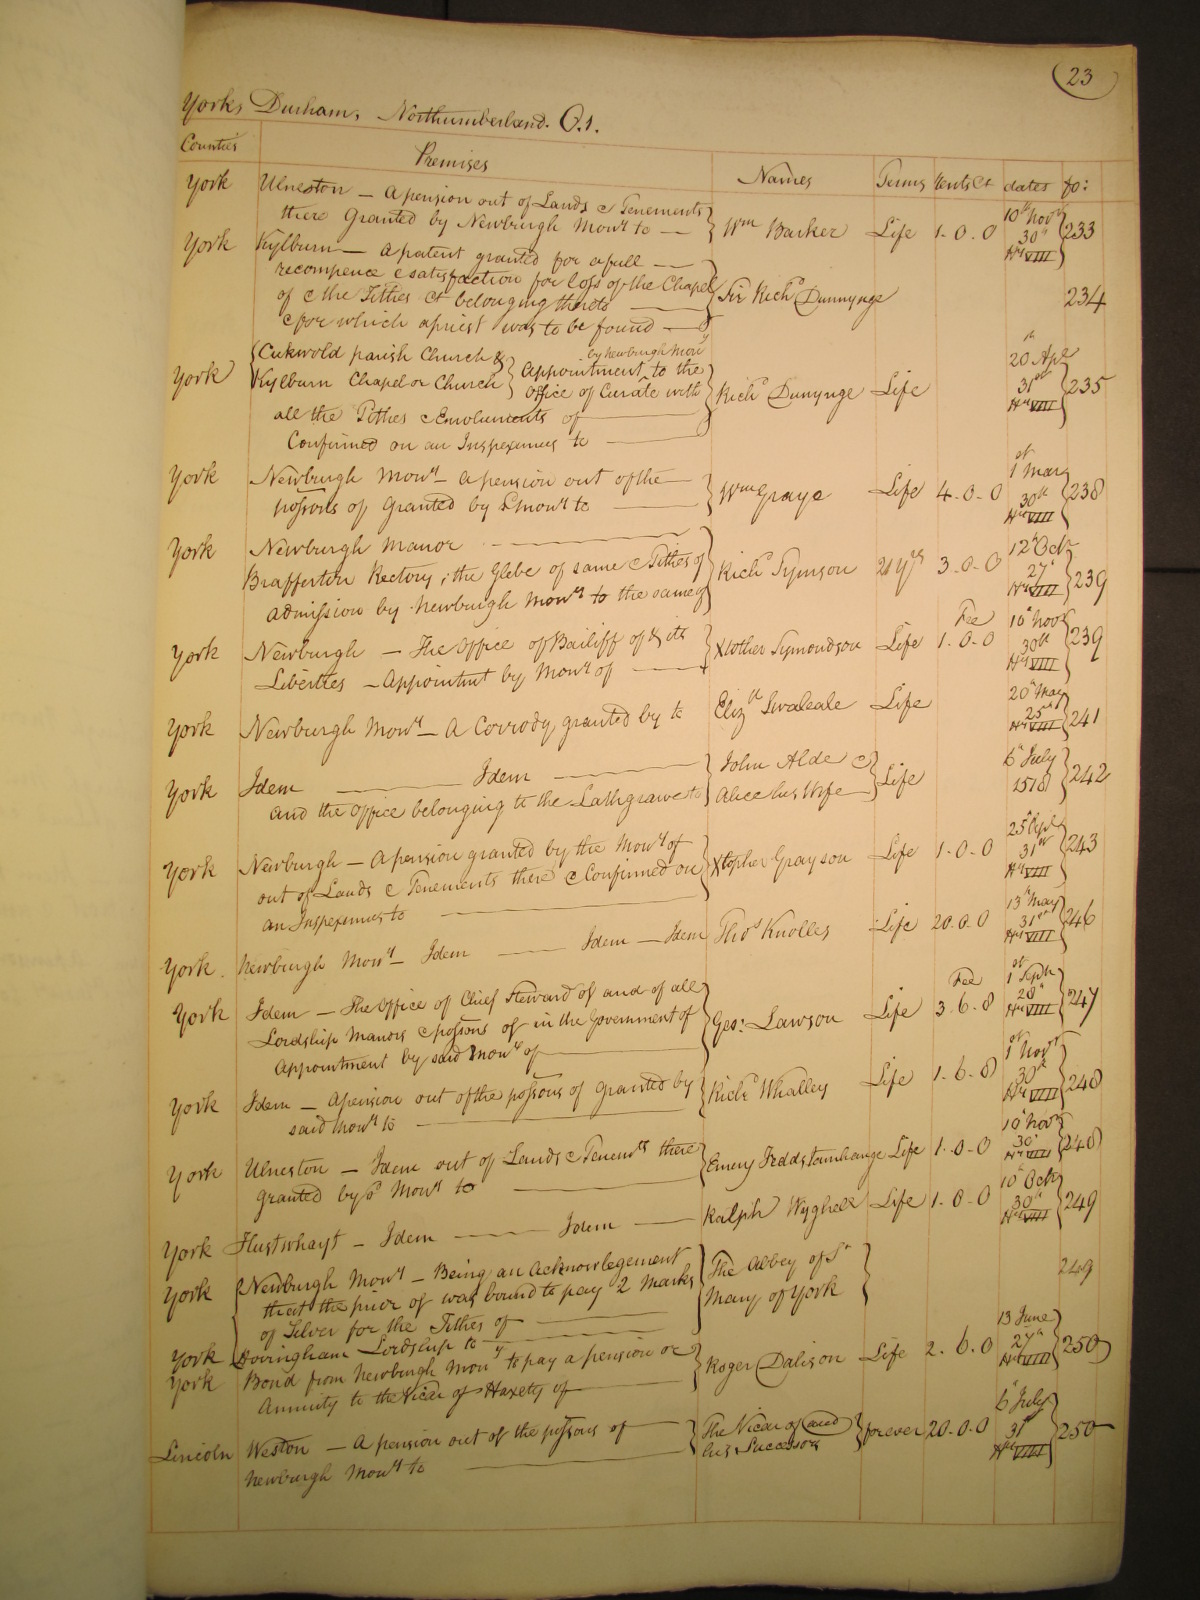 23
Yorks, Durham, Northumberland. O.1.
Counties Premises Names Terms Rents &c dates fo:
York Ulneston — A pension out of Lands & Tenements
there Granted by Newburgh Mon.y to — Wm Barker Life 1-0-0 10th Nov.r 30th Hen VIII 233
York Kylburn — A patent granted for a full —
recompence & satisfaction for loss of the Chapel
of & the Tithes &c belonging thereto Sir Rich.d Dunnynge 234
& for which a priest was to be found —
York Cukwold parish Church & by Newburgh Mon.y
Kylburn Chapel or Church Appointment to the
office of Curate with Rich.d Dunynge Life 20th Apl 31st Hen VIII 235
all the Tithes & Emoluments of
Confirmed on an Inspeximus to
York Newburgh Mon.y — A pension out of the
possons of Granted by sd mon.y to Wm Graye Life 4-0-0 1st Mar 30th Hen VIII 238
York Newburgh Manor
Brafferton Rectory, the Glebe of same & Tithes of Rich.d Symson 21 Yrs 3-0-0 12th Oct 27th Hen VIII 239
admission by Newburgh Mon.y to the same of
York Newburgh — The Office of Bailiff of & its
Liberties — Appointmt by Mon.y of Xtother Symondson Life Fee 1-0-0 10th Nov.r 30th Hen VIII 239
York Newburgh Mon.y — A Corrody granted by to Eliz.th Swaleale Life 20th May 25th Hen VIII 241
York Idem Idem John Alde &
and the Office belonging to the Lathgrawe to Alice his Wife Life 6th July 1518 242
York Newburgh — A pension granted by the Mon.y of
out of Lands & Tenements there & Confirmed on Xtopher Grayson Life 1-0-0 25th Sept 31st Hen VIII 243
an Inspeximus to
York Newburgh Mon.y — Idem — Idem — Idem Thos Knolles Life 20.0.0 13th May 31st Hen VIII 246
York Idem — The Office of Chief Steward of and of all
Lordship Manors & possons of in the Government of Geo: Lawson Life Fee 3-6-8 1st Septr 28th Hen VIII 247
Appointment by said Mon.y of
York Idem — A pension out of the possons of granted by
said Mon.y to Rich.d Whalley Life 1-6-8 1st Nov.r 30th Hen VIII 248
York Ulneston — Idem out of Lands & Tenemts there
granted by sd Mon.y to Emery Life 1-0-0 10th Nov.r 30th Hen VIII 248
York Hustwhayt — Idem — Idem — Ralph Wyghell Life 1-0-0 10th Oct 30th Hen VIII 249
York Newburgh Mon.y — Being an Acknowlegement
that the prior of was bound to pay 2 Marks The Abbey of St
of Silver for the Tithes of Mary of York 249
York Hovingham Lordship to
York Bond from Newburgh Mon.y to pay a pension or
Annuity to the Vicar of Haxety of Roger Dalison Life 2.6.0 13 June 27th Hen VIII 250
Lincoln Weston — A pension out of the possons of
Newburgh Mon.y to The Vicar of and his Successors forever 20.0.0 6th July 31st Hen VIII 250